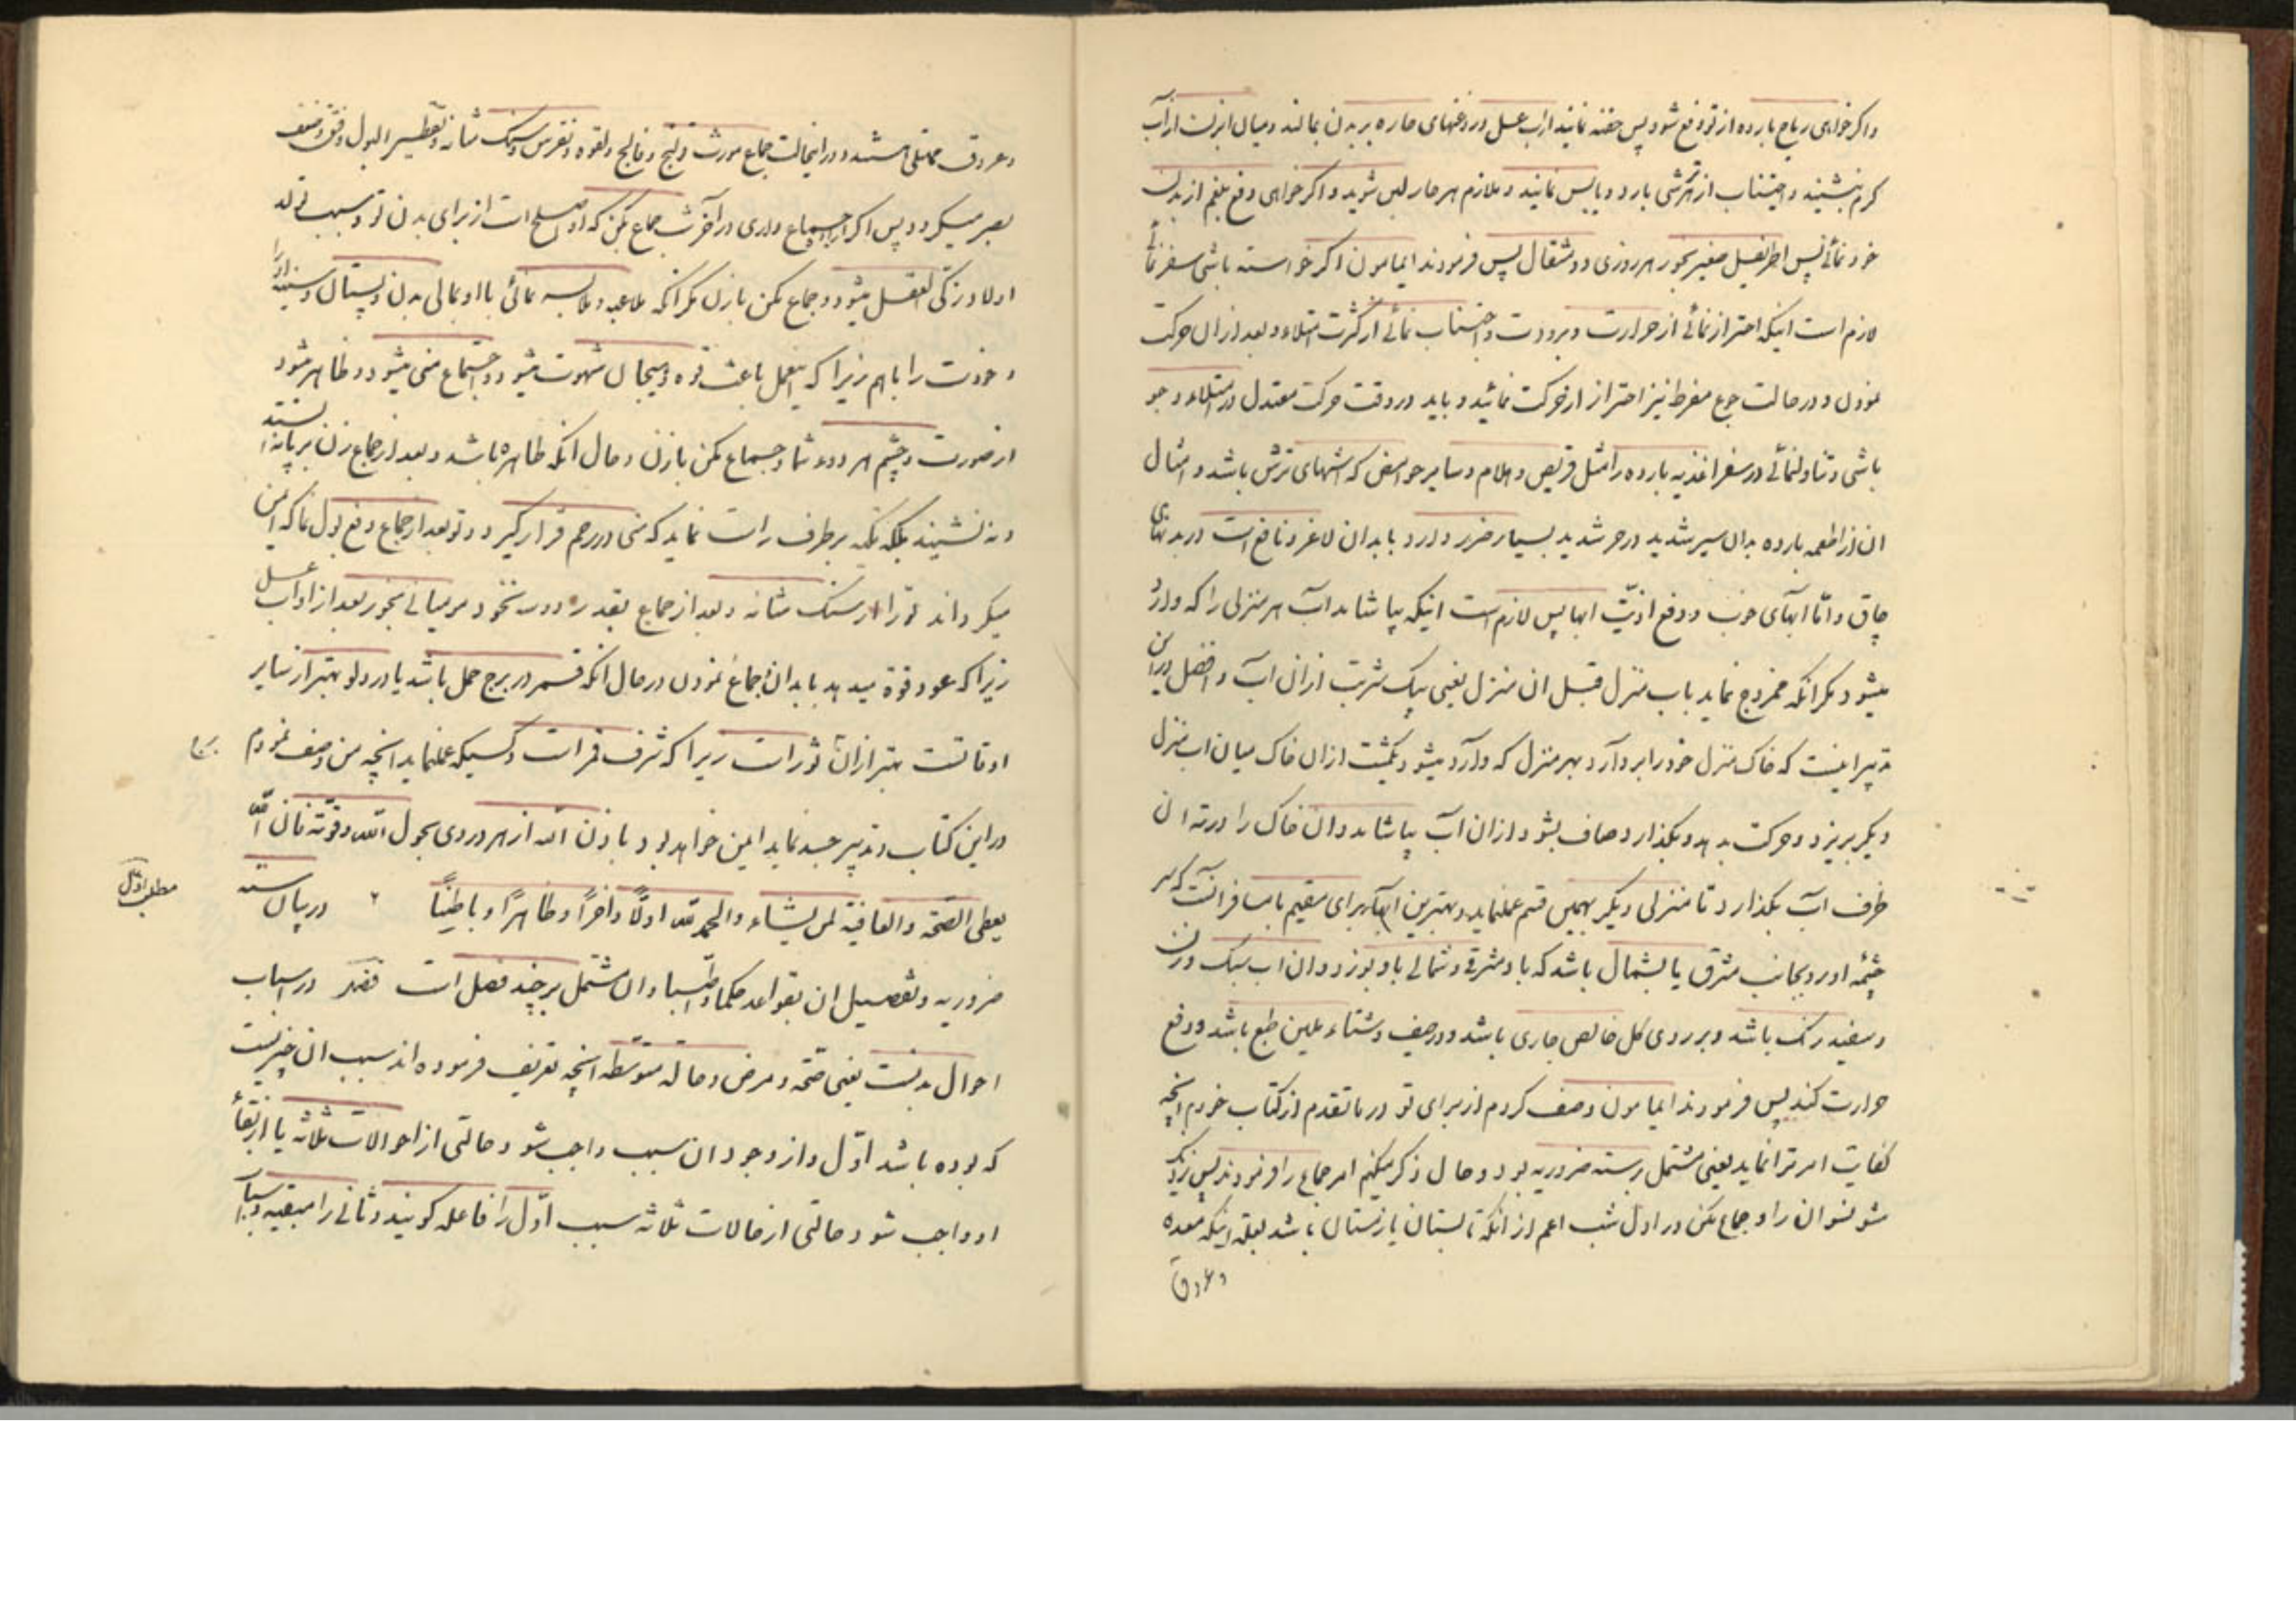 واکر خواهی ریاح بارده از تو دفع شود پس حقنه نمائید از اب عسل و روغنهای حاره بر بدن بمالند و میان ابزنست از آب
کرم بنشیند و اجتناب از هر ترشی بارد و یابس نمائید و ملازم هر حار لین شوید و اکر خواهی دفع بلغم از بدن
خود نمائی پس اطریفل صغیر بخور هر روزی دو مثقال پس فرمودند ایمامون اکر خواسته باشی سفر نمائی
لازم است اینکه احتراز نمائی از حرارت و برودت و اجتناب نمائی از کثرت امتلاء و بعد از ان حرکت
نمودن و در حالت جوع مفرط نیز احتراز از حرکت نمائید و باید در وقت حرکت معتدل در امتلاء و جوع
باشی و تناول نمائی در سفر اغذیه بارده را مثل قریص و هلام و سایر حوامض که اشهای ترش باشد و امثال
ان از اطعمه بارده بدان سیر شدید در حر شدید بسیار ضرر دارد بابدان لاغر و نافع است در بدنهای
چاق و امّا ابهای خوب و دفع اذیّت ابها پس لازم است اینکه بیاشامد آب هر منزلی را که وارد
میشود مکر انکه ممزوج نماید باب منزل قبل ان منزل یعنی یک شربت از ان آب و افضل در این
تدبیر اینست که خاک منزل خود را بردارد و بهر منزل که وارد میشود یکمشت از ان خاک میان اب منزل
دیکر بریزد و حرکت بدهد و بکذارد صاف بشود از ان آب بیاشامد و ان خاک را در ته ان
ظرف آب بکذارد تا منزلی دیکر بهمین قسم عملنماید و بهترین ابها برای مقیم یا مسافر انست که سر
چشمه او رو بجانب مشرق یا بشمال باشد که باد مشرقی و شمالی باو بوزد و ان اب سبک وزن
و سفید رنک باشد و بر روی کل خالص جاری باشد و در صیف و شتاء ملین طبع باشد و دفع
حرارت کند پس فرمودند ایمامون وصف کردم از برای تو در ما تقدم از کتاب خودم انچه
کفایت امر ترا نماید یعنی مشتمل بر سته ضروریه بود و حال ذکر میکنم امر جماع را فرمودند پس نزدیک
مشو نسوان را و جماع مکن در اول شب اعم از انکه تابستان یا زمستان باشد بعلة اینکه معده
و عروق
و عروق ممتلی هستند و در اینحالت جماع مورث قولنج و فالج و لقوه و نقرس و سنک مثانه و تقطیر البول و فتق و ضعف
بصر میکردد پس اکر اراده جماع داری در آخر شب جماع بکن که او اصلح است از برای بدن تو و سبب تولد
اولاد زکی العقل میشود و جماع مکن با زن مکر انکه ملاعبه و ملابسه نمائی با او بمالی بدن و پستان و سینه او را
و خودت را باهم زیرا که اینعمل باعث قوه و هیجان شهوت میشود و اجتماع منی میشود و ظاهر میشود
از صورت و چشم هر دو شما و جماع مکن با زن و حال انکه طاهره باشد و بعد از جماع زن بر پا نه ایستد
و نه نشیند بلکه تکیه بر طرف راست نماید که منی در رحم قرار کیرد و تو بعد از جماع دفع بول نما که ایمن
میکرداند تو را از سنک مثانه و بعد از جماع بقدر دو نخود مومیائی بخور بعد از او آب عسل
زیرا که عود قوة میدهد بابدان و جماع نمودن در حال انکه قمر در برج حمل باشد یا در دلو بهتر از سایر
اوقاتست بهتر از ان ثور است زیرا که شرف قمر است و کسیکه عملنماید انچه من وصف نمودم
در این کتاب و تدبیر جسد نماید ایمن خواهد بود باذن الله از هر دردی بحول الله و قوّته فان الله
یعطی الصحّة و العافیة لمن یشاء و الحمد لله اوّلًا و اخرًا و ظاهرًا و باطنًا در بیان سته
مطلب اوّل
ضروریه و تفصیل ان بقواعد حکما و اطبّا و ان مشتمل بر چند فصل است فصل در اسباب
احوال بدنست یعنی صحّة و مرض و حالة متوسّطه انچه تعریف فرموده اند سبب ان چیزیست
که بوده باشد اوّل و از وجود ان سبب واجب شود حالتی از احوالات ثلاثه یا از بقاء
او واجب شود حالتی از حالات ثلاثه سبب اوّل را فاعله کویند و ثانی را مبقیه و اسباب